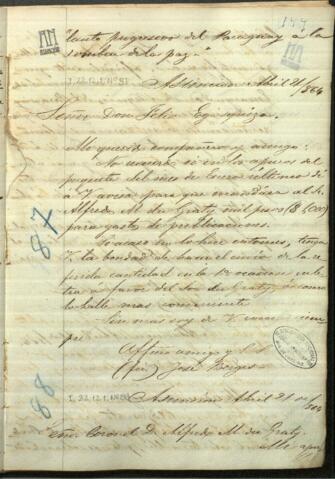 144
tanto progresor del Paraguay á la
sombra de la paz."
I-22,12,1 Nº 87
Asuncion Abril 21/864
Señor Don Felix Egusquiza.
Mi querido compañero y amigo:
No si en los apuros del
paquete del mes de Enero ultimo di
á V. aviso para que mandase al Sr.
Alfredo M. du Graty mil pesos ($ 1,000)
para gastos de publicaciones.
Si acaso no lo hice entonces, tenga
V. la bondad de hacer el envio de la re
ferida cantidad en la 1ª ocasion en le
tra á favor del Sor du Graty, ó como
lo halle mas conveniente.
Sin mas soy de V. como siem
pre
Affmo amigo y S. S.
(fir) José Berges
87
88
I-22,12,1 Nº 88
Asuncion Abril 21 de/864
Señor Coronel D. Alfredo M. du Graty.